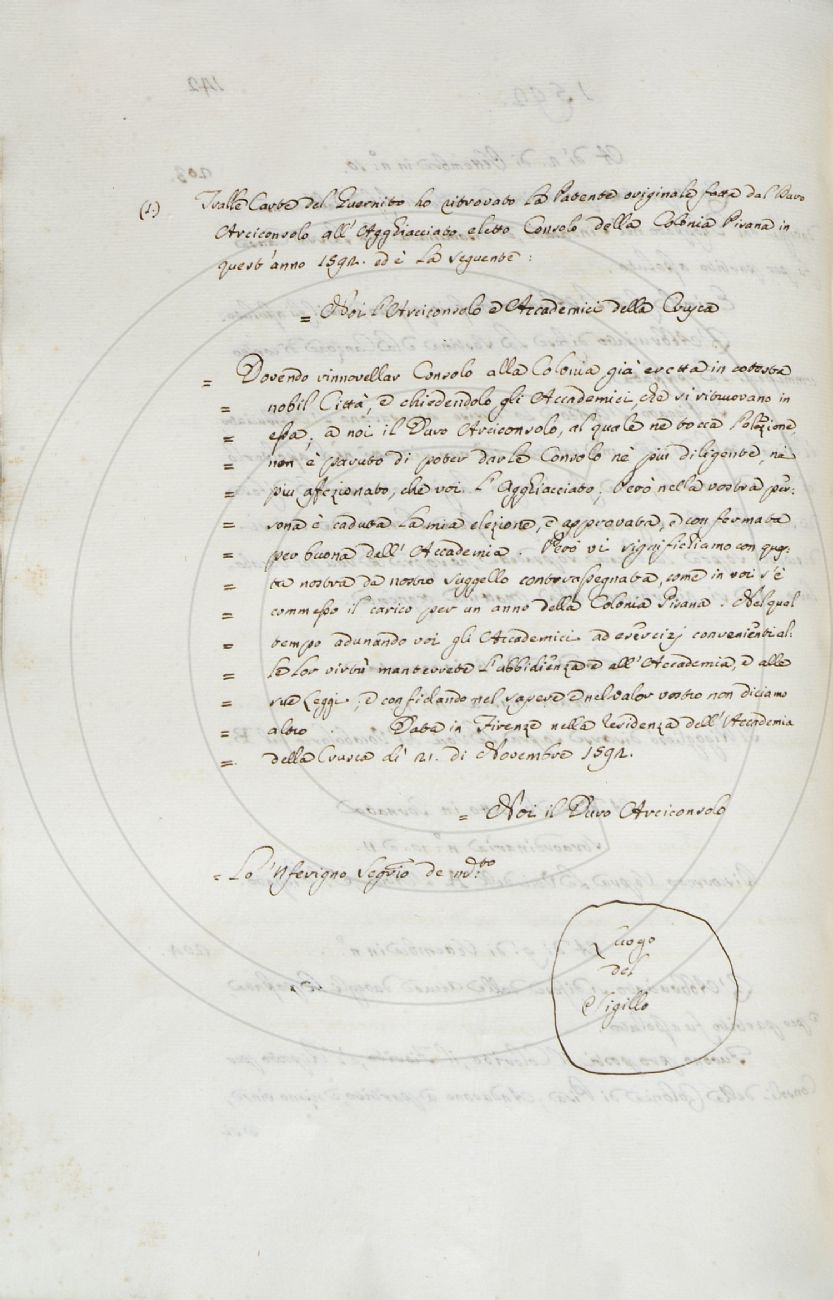 (1.) Tralle Carte del Guernito ho ritrovato la Patente originale fatta dal Duro
Arciconsolo all'Agghiacciato eletto Consolo della Colonia Pisana in
quest'anno 1592. ed è la seguente:
= Noi l'Arciconsolo e Accademici della Crusca
= Dovendo rinnovellar Consolo alla Colonia già eretta in cotesta
= nobil Città, e chiedendolo gli Accademici, che si ritruovano in
= essa; a noi il Duro Arciconsolo, al quale ne tocca l'elezione
= non è paruto di poter darle Consolo nè più diligente, nè
= più affezionato, che voi l'Agghiacciato; Però nella vostra per:
= sona è caduta la mia elezione, e approvata, e confermata
= per buona dall'Accademia. Però vi significhiamo con ques:
= ta nostra da nostro suggello contrassegnata, come in voi s'è
= commesso il carico per un anno della Colonia Pisana: Nel qual
= tempo adunando voi gli Accademici ad esercizj convenienti al:
= le lor virtù manterrete l'ubbidienza e all'Accademia, e alle
= sue Leggi; e confidando nel sapere e nel valor vostro non diciamo
= altro. Data in Firenze nella Residenza dell'Accademia
= della Crusca dì 21. di Novembre 1592.
= Noi il Duro Arciconsolo
= Lo 'Nferigno Segrio de md.to
Luogo
del
Sigillo